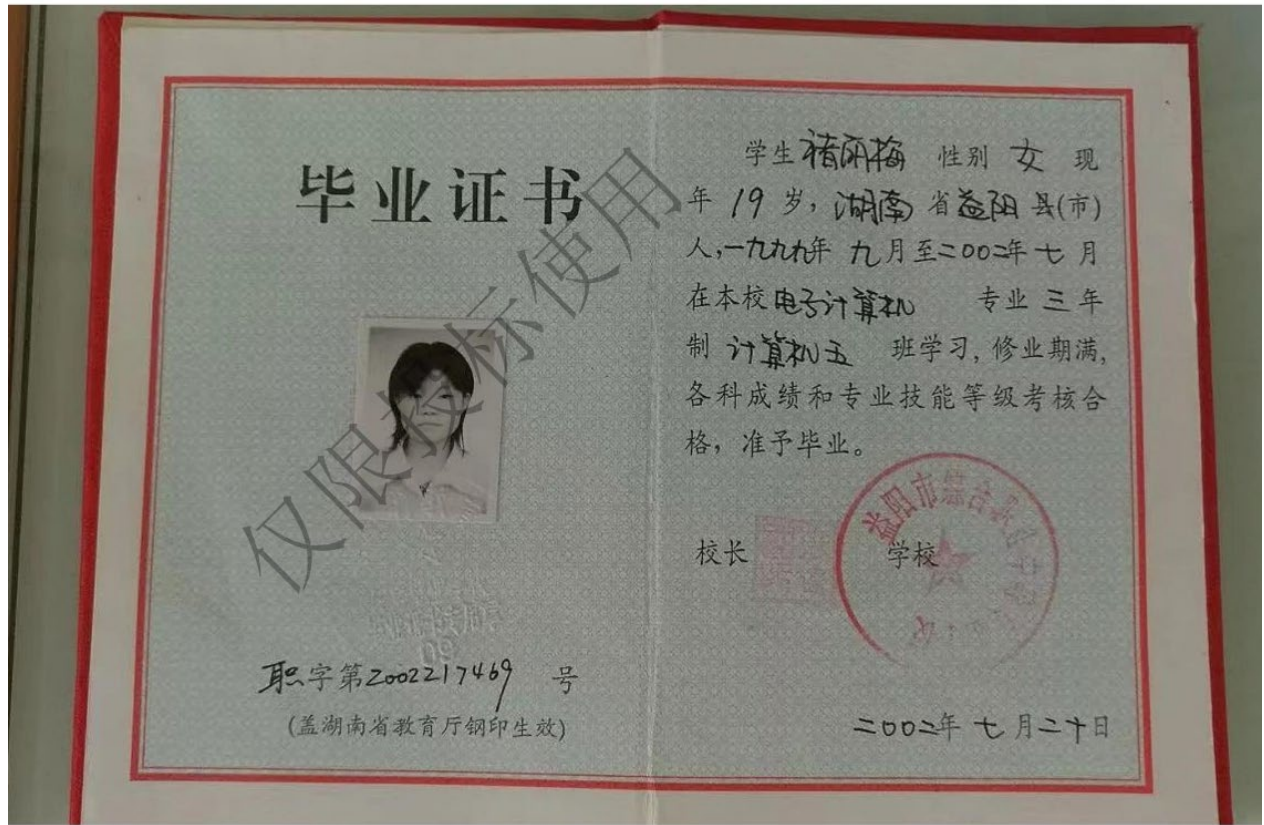 毕业证书
仅限投标使用
职字第2002217469 号
(盖湖南省教育厅钢印生效)
学生褚丽梅 性别 女 现
年 19 岁，湖南省益阳县(市)
人，一九九九年 九月至二00二年七月
在本校电子计算机 专业三年
制 计算机五 班学习，修业期满，
各科成绩和专业技能等级考核合
格，准予毕业。
校长 学校
益阳市综合
二00二年 七月二十日